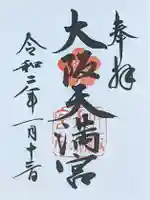 奉拝
大阪天満宮
令和二年一月十三日